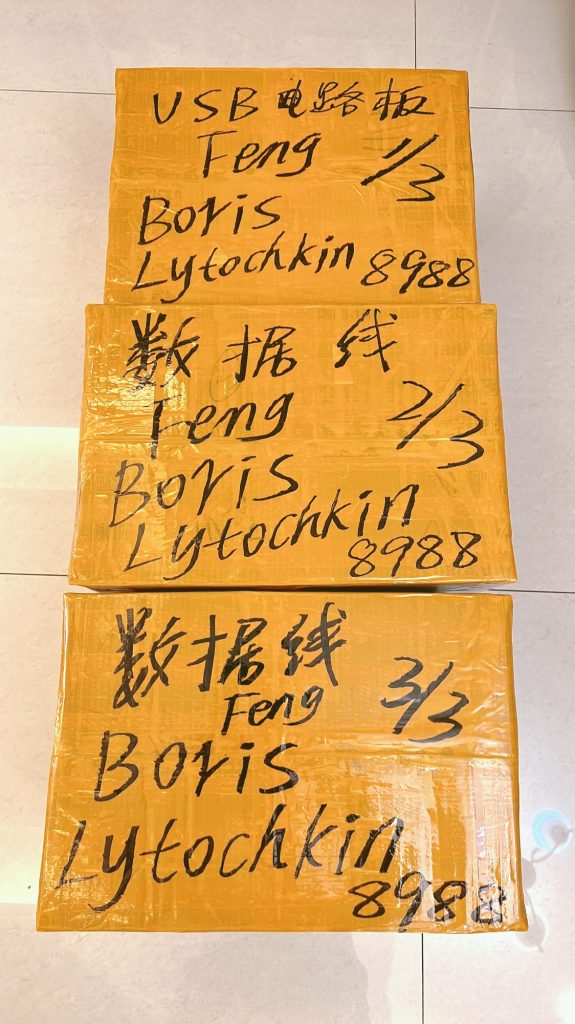 USB电路板
Feng 1/3
Boris
Lytochkin 8988
数据线
Feng 2/3
Boris
Lytochkin
8988
数据线
Feng 3/3
Boris
Lytochkin
8988